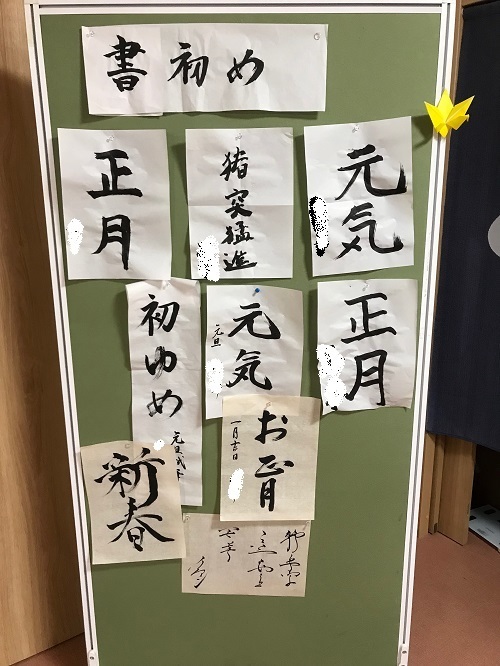 書初め
正月
猪突猛進
元気
初ゆめ
元気
元旦
正月
お正月
一月吉日
新春